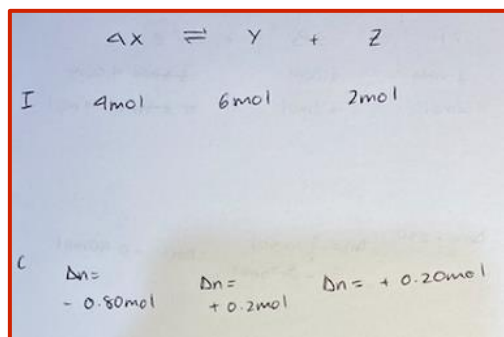 4X ⇌ Y + Z
I 4mol 6mol 2mol
C Δn= - 0.80mol Δn= + 0.2mol Δn= + 0.20mol